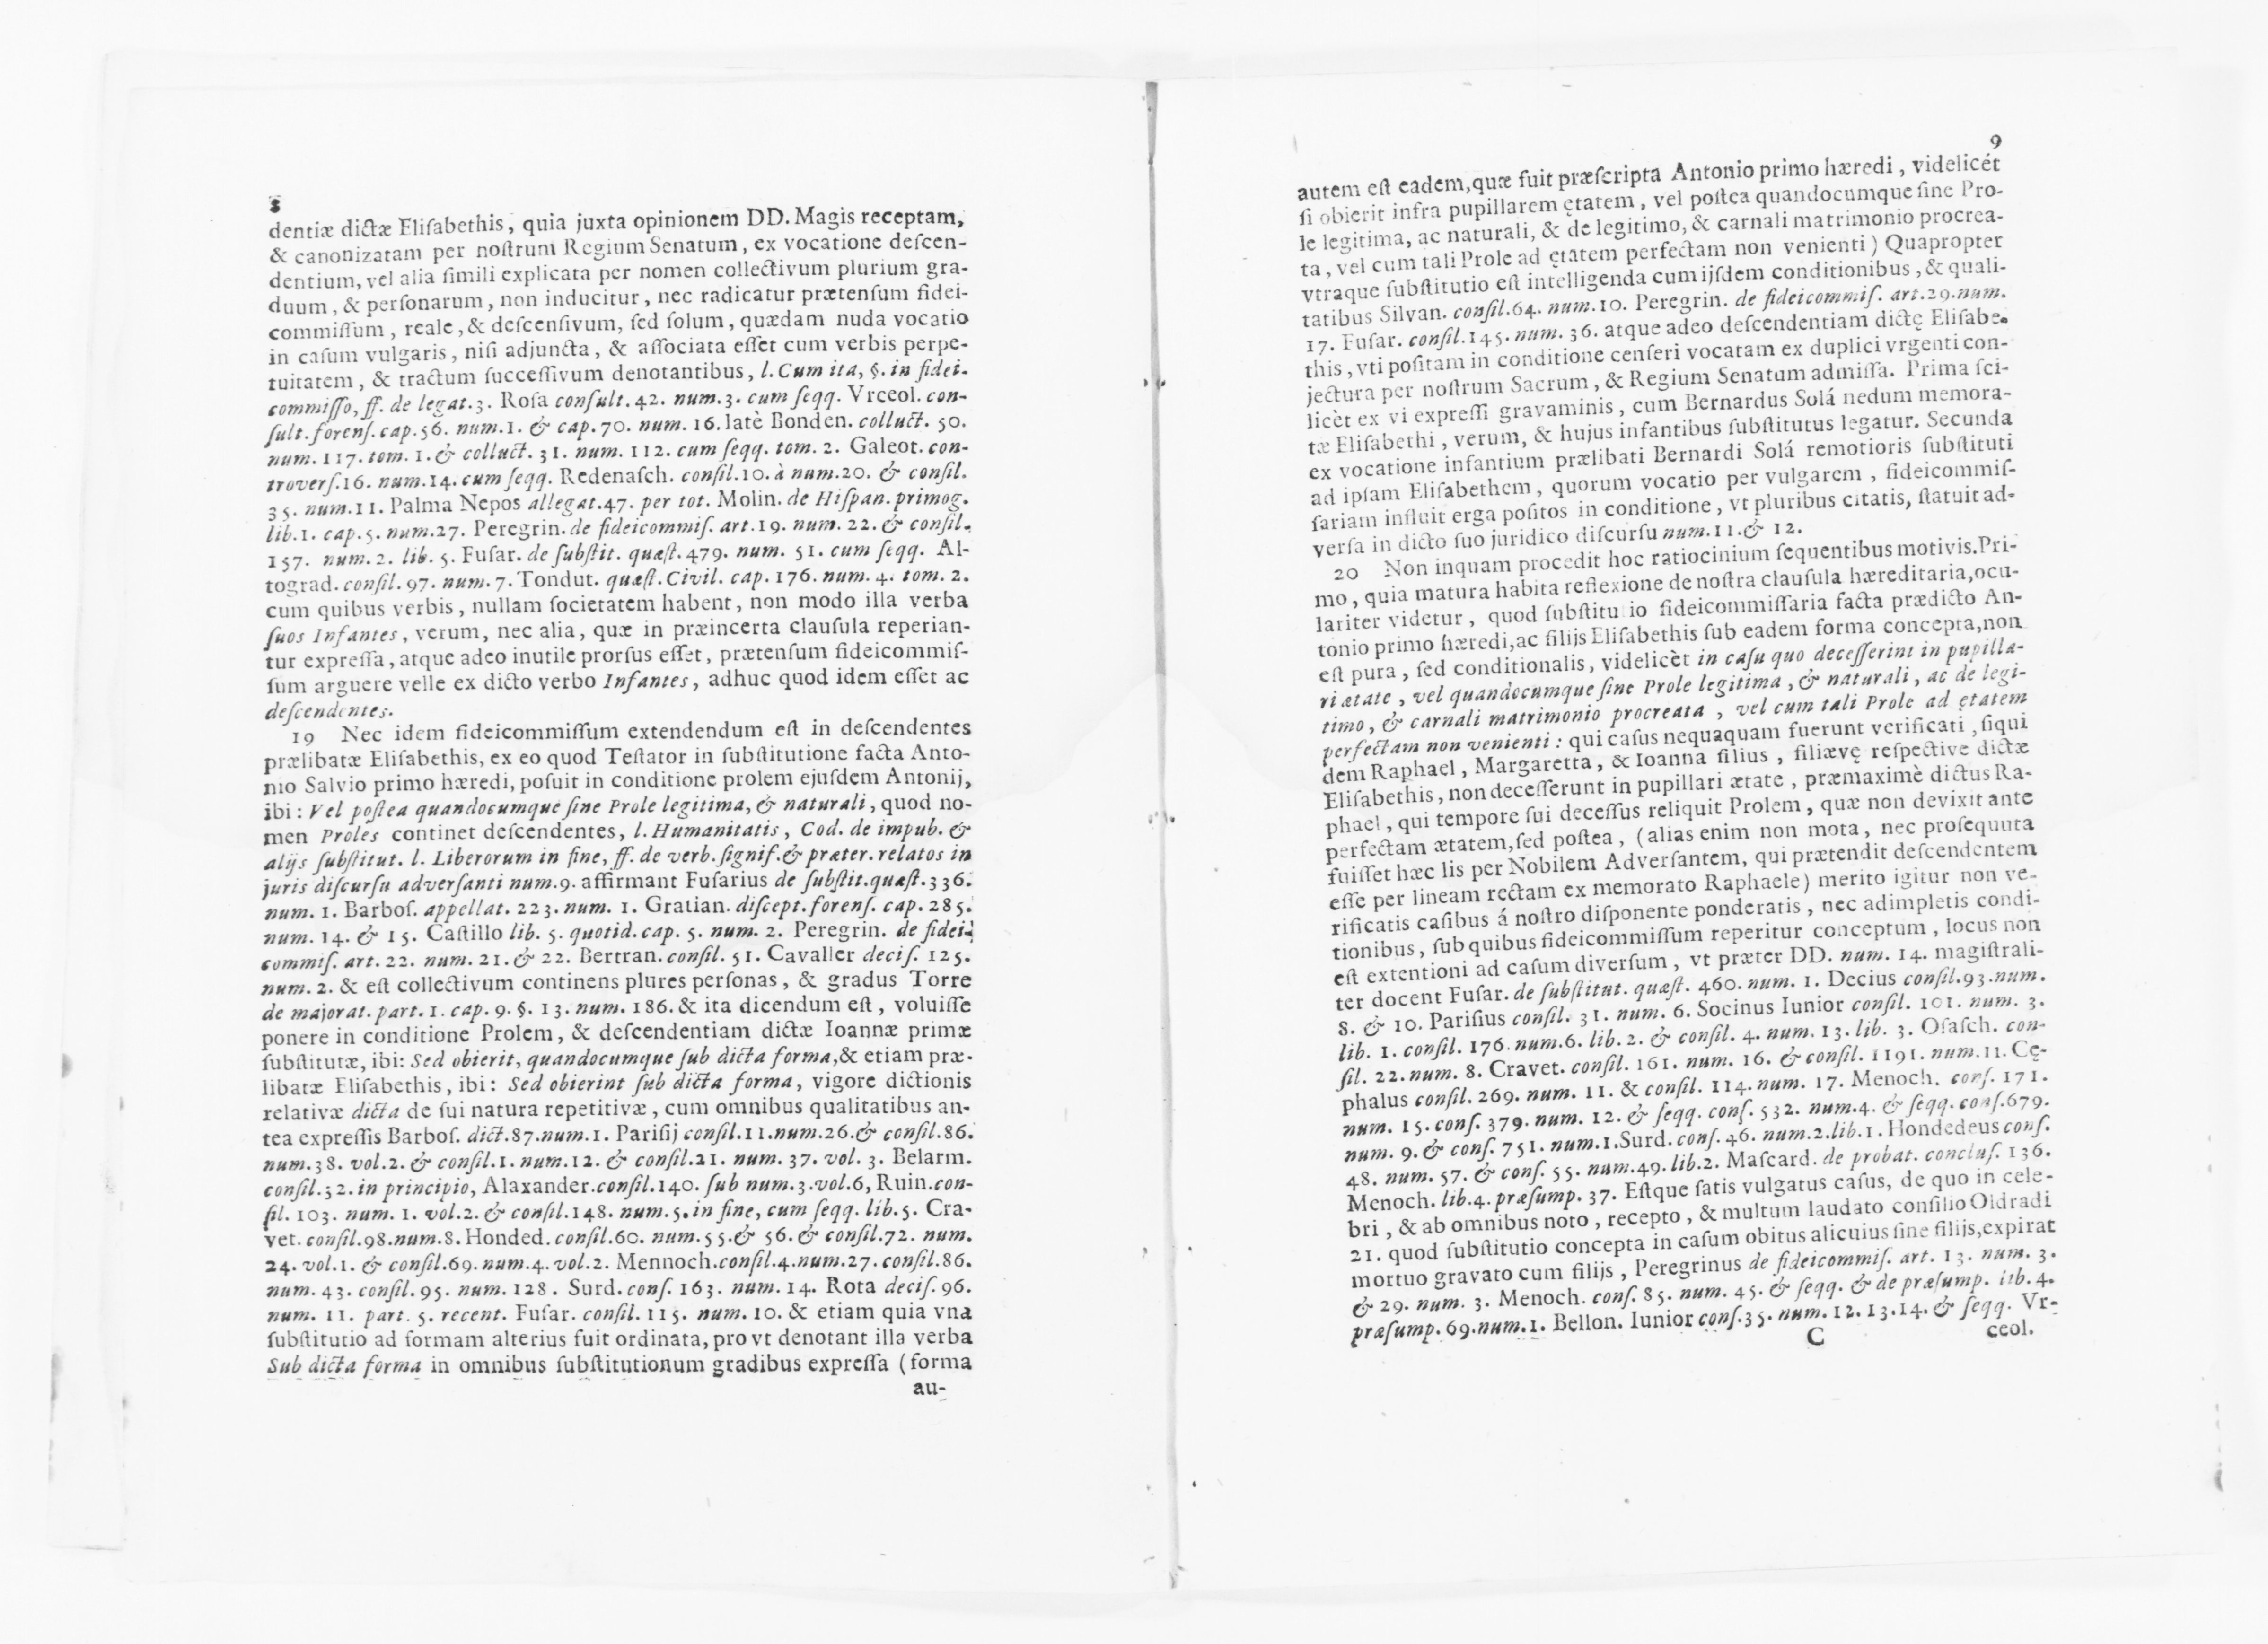 8
dentiæ dictæ Eliſabethis, quia juxta opinionem DD. Magis receptam,
& canonizatam per noſtrum Regium Senatum, ex vocatione deſcen-
dentium, vel alia ſimili explicata per nomen collectivum plurium gra-
duum, & perſonarum, non inducitur, nec radicatur prætenſum fidei-
commiſſum, reale, & deſcenſivum, ſed ſolum, quædam nuda vocatio
in caſum vulgaris, niſi adjuncta, & aſſociata eſſet cum verbis perpe-
tuitatem, & tractum ſucceſſivum denotantibus, l. Cum ita, §. in fidei-
commiſſo, ff. de legat. 3. Roſa conſult. 42. num. 3. cum ſeqq. Vrceol. con-
ſult. forenſ. cap. 56. num. 1. & cap. 70. num. 16. latè Bonden. colluct. 50.
num. 117. tom. 1. & colluct. 31. num. 112. cum ſeqq. tom. 2. Galeot. con-
troverſ. 16. num. 14. cum ſeqq. Redenaſch. conſil. 10. à num. 20. & conſil.
35. num. 11. Palma Nepos allegat. 47. per tot. Molin. de Hiſpan. primog.
lib. 1. cap. 5. num. 27. Peregrin. de fideicommiſ. art. 19. num. 22. & conſil.
157. num. 2. lib. 5. Fuſar. de ſubſtit. quæſt. 479. num. 51. cum ſeqq. Al-
tograd. conſil. 97. num. 7. Tondut. quæſt. Civil. cap. 176. num. 4. tom. 2.
cum quibus verbis, nullam ſocietatem habent, non modo illa verba
ſuos Infantes, verum, nec alia, quæ in præincerta clauſula reperian-
tur expreſſa, atque adeo inutile prorſus eſſet, prætenſum fideicommiſ-
ſum arguere velle ex dicto verbo Infantes, adhuc quod idem eſſet ac
deſcendentes.
19 Nec idem fideicommiſſum extendendum eſt in deſcendentes
prælibatæ Eliſabethis, ex eo quod Teſtator in ſubſtitutione facta Anto-
nio Salvio primo hæredi, poſuit in conditione prolem ejuſdem Antonij,
ibi: Vel poſtea quandocumque ſine Prole legitima, & naturali, quod no-
men Proles continet deſcendentes, l. Humanitatis, Cod. de impub. &
alijs ſubſtitut. l. Liberorum in fine, ff. de verb. ſignif. & præter. relatos in
juris diſcurſu adverſanti num. 9. affirmant Fuſarius de ſubſtit. quæſt. 336.
num. 1. Barboſ. appellat. 223. num. 1. Gratian. diſcept. forenſ. cap. 285.
num. 14. & 15. Caſtillo lib. 5. quotid. cap. 5. num. 2. Peregrin. de fidei-
commiſ. art. 22. num. 21. & 22. Bertran. conſil. 51. Cavaller deciſ. 125.
num. 2. & eſt collectivum continens plures perſonas, & gradus Torre
de majorat. part. 1. cap. 9. §. 13. num. 186. & ita dicendum eſt, voluiſſe
ponere in conditione Prolem, & deſcendentiam dictæ Ioannæ primæ
ſubſtitutæ, ibi: Sed obierit, quandocumque ſub dicta forma, & etiam præ-
libatæ Eliſabethis, ibi: Sed obierint ſub dicta forma, vigore dictionis
relativæ dicta de ſui natura repetitivæ, cum omnibus qualitatibus an-
tea expreſſis Barboſ. dict. 87. num. 1. Pariſij conſil. 11. num. 26. & conſil. 86.
num. 38. vol. 2. & conſil. 1. num. 12. & conſil. 21. num. 37. vol. 3. Belarm.
conſil. 32. in principio, Alaxander. conſil. 140. ſub num. 3. vol. 6, Ruin. con-
ſil. 103. num. 1. vol. 2. & conſil. 148. num. 5. in fine, cum ſeqq. lib. 5. Cra-
vet. conſil. 98. num. 8. Honded. conſil. 60. num. 55. & 56. & conſil. 72. num.
24. vol. 1. & conſil. 69. num. 4. vol. 2. Mennoch. conſil. 4. num. 27. conſil. 86.
num. 43. conſil. 95. num. 128. Surd. conſ. 163. num. 14. Rota deciſ. 96.
num. 11. part. 5. recent. Fuſar. conſil. 115. num. 10. & etiam quia vna
ſubſtitutio ad formam alterius fuit ordinata, pro vt denotant illa verba
Sub dicta forma in omnibus ſubſtitutionum gradibus expreſſa (forma
au-
9
autem eſt eadem, quæ fuit præſcripta Antonio primo hæredi, videlicét
ſi obierit infra pupillarem ętatem, vel poſtea quandocumque ſine Pro-
le legitima, ac naturali, & de legitimo, & carnali matrimonio procrea-
ta, vel cum tali Prole ad ętatem perfectam non venienti) Quapropter
vtraque ſubſtitutio eſt intelligenda cum ijſdem conditionibus, & quali-
tatibus Silvan. conſil. 64. num. 10. Peregrin. de fideicommiſ. art. 29. num.
17. Fuſar. conſil. 145. num. 36. atque adeo deſcendentiam dictę Eliſabe-
this, vti poſitam in conditione cenſeri vocatam ex duplici vrgenti con-
jectura per noſtrum Sacrum, & Regium Senatum admiſſa. Prima ſci-
licèt ex vi expreſſi gravaminis, cum Bernardus Solá nedum memora-
tæ Eliſabethi, verum, & hujus infantibus ſubſtitutus legatur. Secunda
ex vocatione infantium prælibati Bernardi Solá remotioris ſubſtituti
ad ipſam Eliſabethem, quorum vocatio per vulgarem, fideicommiſ-
ſariam influit erga poſitos in conditione, vt pluribus citatis, ſtatuit ad-
verſa in dicto ſuo juridico diſcurſu num. 11. & 12.
20 Non inquam procedit hoc ratiocinium ſequentibus motivis. Pri-
mo, quia matura habita reflexione de noſtra clauſula hæreditaria, ocu-
lariter videtur, quod ſubſtitu io fideicommiſſaria facta prædicto An-
tonio primo hæredi, ac filijs Eliſabethis ſub eadem forma concepta, non
eſt pura, ſed conditionalis, videlicèt in caſu quo deceſſerint in pupilla-
ri ætate, vel quandocumque ſine Prole legitima, & naturali, ac de legi-
timo, & carnali matrimonio procreata, vel cum tali Prole ad ętatem
perfectam non venienti: qui caſus nequaquam fuerunt verificati, ſiqui
dem Raphael, Margaretta, & Ioanna filius, filiævę reſpective dictæ
Eliſabethis, non deceſſerunt in pupillari ætate, præmaximè dictus Ra-
phael, qui tempore ſui deceſſus reliquit Prolem, quæ non devixit ante
perfectam ætatem, ſed poſtea, (alias enim non mota, nec proſequuta
fuiſſet hæc lis per Nobilem Adverſantem, qui prætendit deſcendentem
eſſe per lineam rectam ex memorato Raphaele) merito igitur non ve-
rificatis caſibus á noſtro diſponente ponderatis, nec adimpletis condi-
tionibus, ſub quibus fideicommiſſum reperitur conceptum, locus non
eſt extentioni ad caſum diverſum, vt præter DD. num. 14. magiſtrali-
ter docent Fuſar. de ſubſtitut. quæſt. 460. num. 1. Decius conſil. 93. num.
8. & 10. Pariſius conſil. 31. num. 6. Socinus Iunior conſil. 101. num. 3.
lib. 1. conſil. 176. num. 6. lib. 2. & conſil. 4. num. 13. lib. 3. Oſaſch. con-
ſil. 22. num. 8. Cravet. conſil. 161. num. 16. & conſil. 1191. num. 11. Cę-
phalus conſil. 269. num. 11. & conſil. 114. num. 17. Menoch. conſ. 171.
num. 15. conſ. 379. num. 12. & ſeqq. conſ. 532. num. 4. & ſeqq. conſ. 679.
num. 9. & conſ. 751. num. 1. Surd. conſ. 46. num. 2. lib. 1. Hondedeus conſ.
48. num. 57. & conſ. 55. num. 49. lib. 2. Maſcard. de probat. concluſ. 136.
Menoch. lib. 4. præſump. 37. Eſtque ſatis vulgatus caſus, de quo in cele-
bri, & ab omnibus noto, recepto, & multum laudato conſilio Oldradi
21. quod ſubſtitutio concepta in caſum obitus alicuius ſine filijs, expirat
mortuo gravato cum filijs, Peregrinus de fideicommiſ. art. 13. num. 3.
& 29. num. 3. Menoch. conſ. 85. num. 45. & ſeqq. & de præſump. lib. 4.
præſump. 69. num. 1. Bellon. Iunior conſ. 35. num. 12. 13. 14. & ſeqq. Vr-
C
ceol.